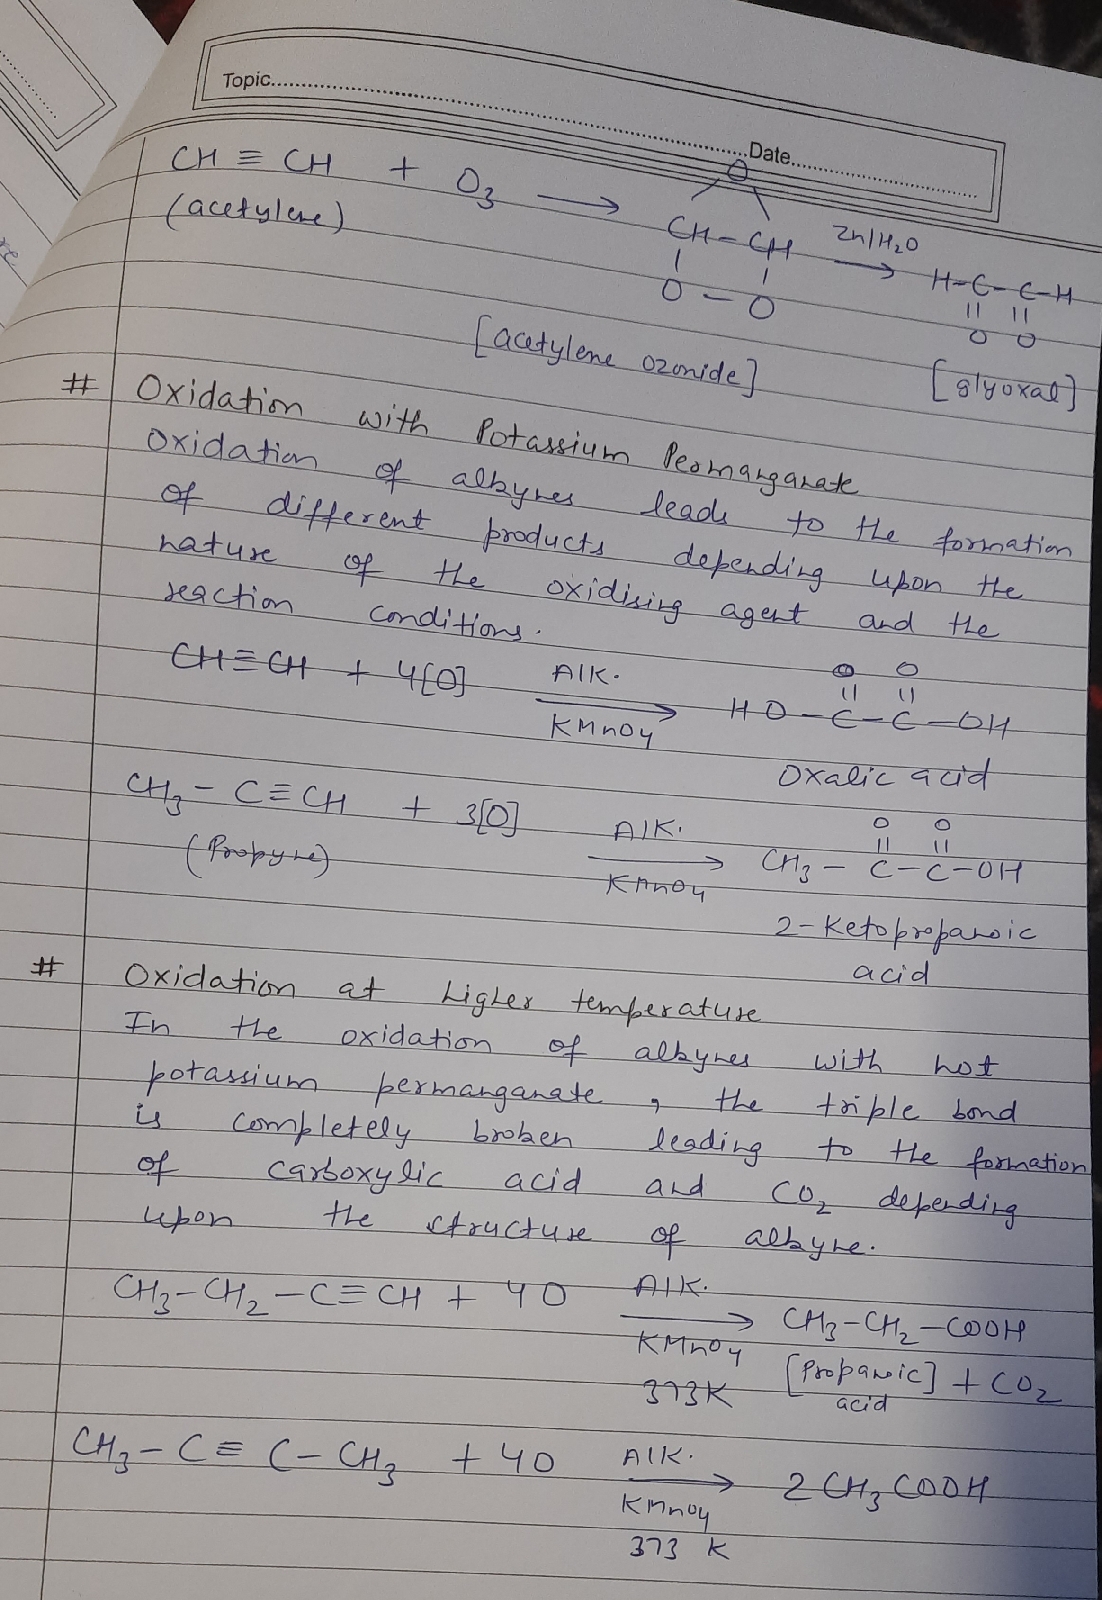 Topic..........Date..........
CH ≡ CH + O₃ ⟶ CH-CH Zn/H₂O ⟶ H-C-C-H
(acetylene)
O
O - O
O O
[acetylene ozonide] [glyoxal]
# Oxidation with Potassium Permanganate
Oxidation of alkynes leads to the formation
of different products depending upon the
nature of the oxidising agent and the
reaction conditions.
CH≡CH + 4[O] Alk. KMnO₄ ⟶ HO-C-C-OH
O O
Oxalic acid
CH₃-C≡CH + 3[O] Alk. KMnO₄ ⟶ CH₃-C-C-OH
O O
(Propyne)
2-Ketopropanoic
acid
# Oxidation at higher temperature
In the oxidation of alkynes with hot
potassium permanganate, the triple bond
is completely broken leading to the formation
of carboxylic acid and CO₂ depending
upon the structure of alkyne.
CH₃-CH₂-C≡CH + 4O Alk. KMnO₄ 373K ⟶ CH₃-CH₂-COOH
[Propanoic] + CO₂
acid
CH₃-C≡C-CH₃ + 4O Alk. KMnO₄ 373 K ⟶ 2CH₃COOH